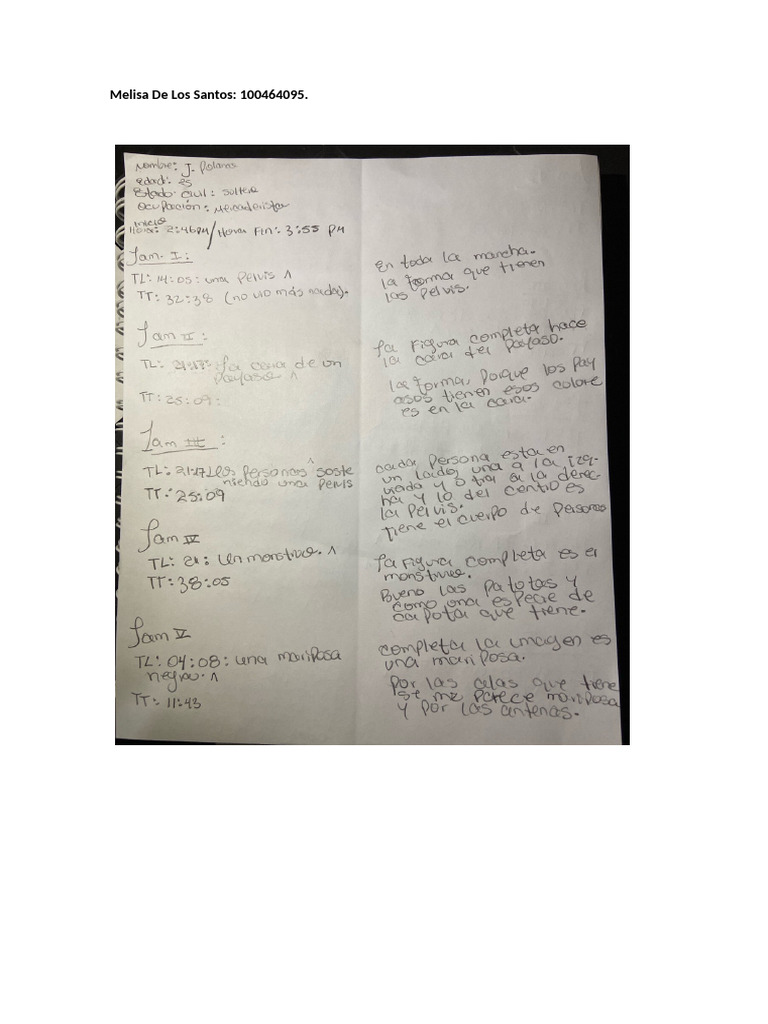 Melisa De Los Santos: 100464095.
Nombre: J. Polanco
Edad: es
Estado Civil: Soltero
Ocupación: Mercaderista
Inicio
Hora: 2:46PM/Hora Fin: 3:55 PM
Lam. I:
TL: 14:05: una Pelvis ^
TT: 32:38 (no vio más nada).
en toda la mancha.
la forma que tienen
las Pelvis.
Lam II:
TL: 21:17: La cara de un
Payaso ^
TT: 25:09:
La Figura completa hace
la cara del Payaso.
La forma, Porque los Pay
asos tienen esos colore
es en la cara.
Lam III:
TL: 21:17 Los Personas ^ soste
niendo una Pelvis
TT: 25:09
cada Persona esta en
un lado, una a la izq-
uieda y otra a la derec-
ha y lo del centro es
la Pelvis.
tiene el cuerpo de Personas
Lam IV
TL: 21: Un monstruo. ^
TT: 38:05
La Figura completa es el
monstruo.
Bueno las Patotas y
como una especie de
capota que tiene.
Lam V
TL: 04:08: una mariposa
negra. ^
TT: 11:43
completa la imagen es
una mariposa.
Por las alas que tiene
se me Parece mariposa
y Por las antenas.